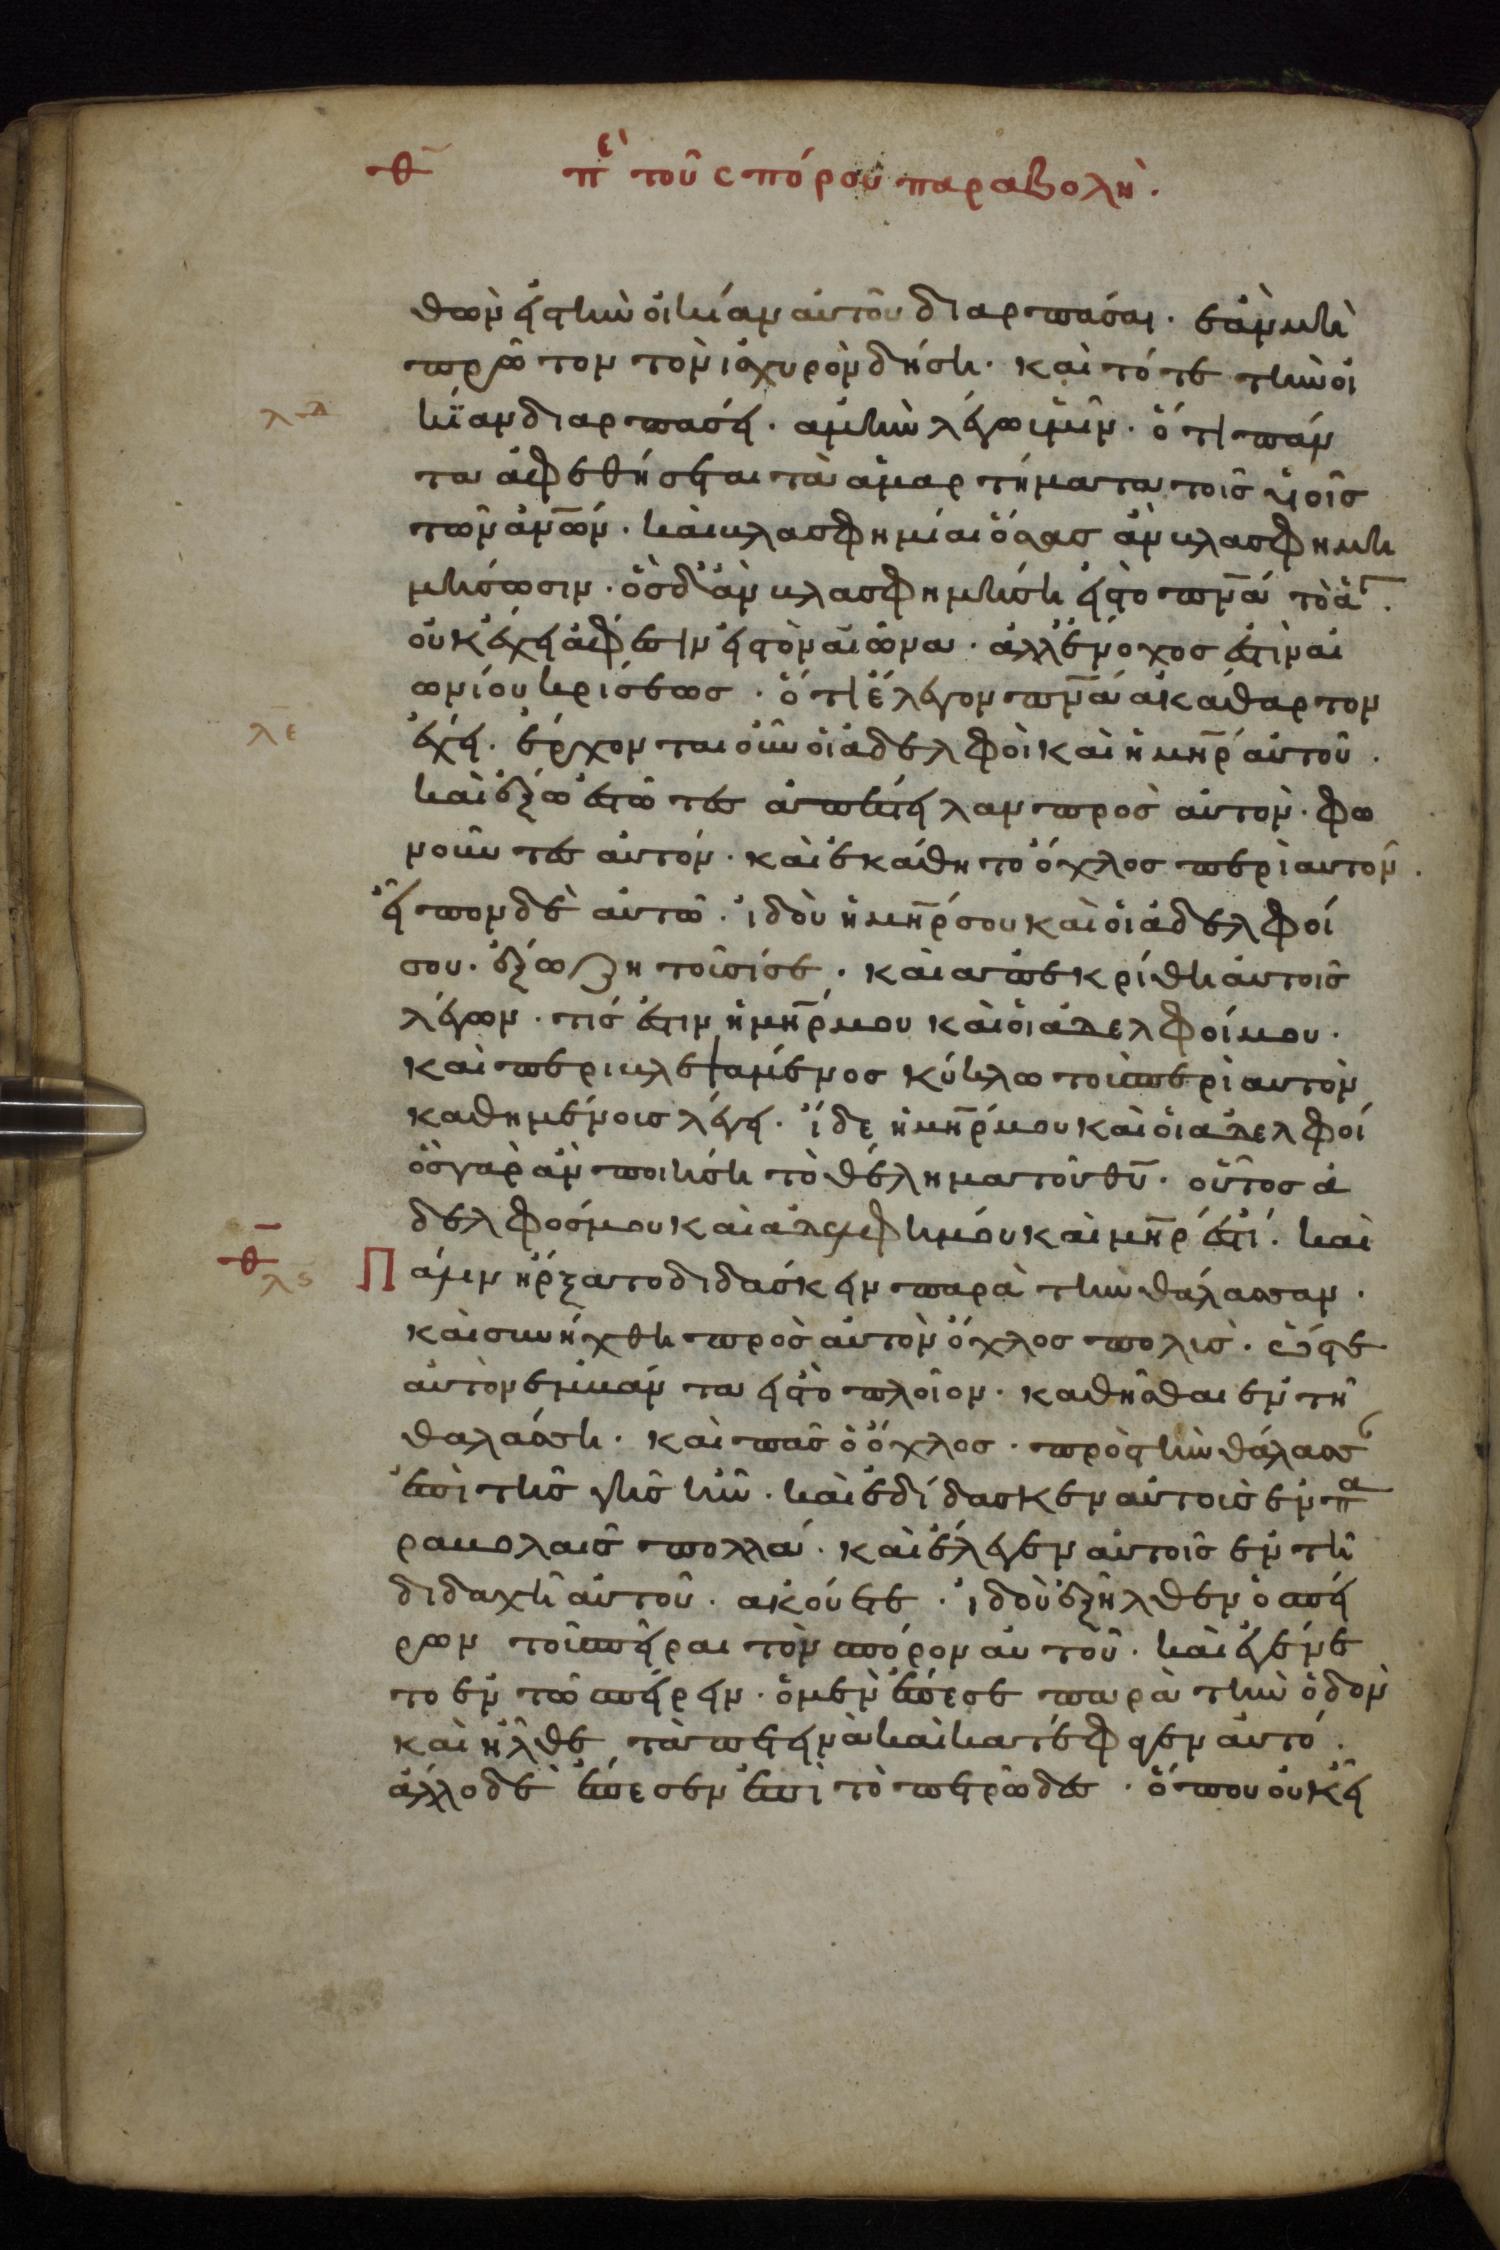 θ̅ πὲ τοῦ σπόρου παραβολὴ.
θὼν εἰς τὴν οἰκίαν αὐτοῦ διαρπάσαι. ἐὰν μὴ
πρῶτον τὸν ἰσχυρὸν δήση. καὶ τότε τὴν οἰ
λδ κίαν διαρπάσει. ἀμὴν λέγω ὑμῖν. ὅτι πάν
τα ἀφεθήσεται τὰ ἁμαρτήματα τοῖς υἱοῖς
τῶν ἀν̅ων. καὶ βλασφημίαι ὅσας ἂν βλασφημη
μήσωσιν. ὃς δ' ἂν βλασφημήση εἰς τὸ πν̅α τὸ ἅγ.
οὐκ ἔχει ἄφεσιν εἰς τὸν αἰῶνα. ἀλλ' ἔνοχος ἐστὶν αἰ
ωνίου κρίσεως. ὅτι ἔλεγον πν̅α ἀκάθαρτον
λε ἔχει. ἔρχονται οὖν οἱ ἀδελφοὶ καὶ ἡ μη̅ρ αὐτοῦ.
καὶ ἔξω ἑστῶτες ἀπέστειλαν πρὸς αὐτὸν. φω
νοῦντες αὐτόν. καὶ ἐκάθητο ὄχλος περὶ αὐτὸν.
εἶπον δὲ αὐτῶ. ἰδοὺ ἡ μη̅ρ σου καὶ οἱ ἀδελφοί
σου. ἔξω ζητοῦσί σε. καὶ ἀπεκρίθη αὐτοῖς
λέγων. τίς ἐστιν ἡ μη̅ρ μου καὶ οἱ ἀδελφοί μου.
καὶ περιβλεψάμενος κύκλω τοὺς περὶ αὐτὸν
καθημένοις λέγει. ἴδε ἡ μη̅ρ μου καὶ οἱ ἀδελφοί
ὃς γὰρ ἂν ποιήση τὸ θέλημα τοῦ θυ̅. οὗτος ἀ
δελφός μου καὶ ἀδελφή μου καὶ μη̅ρ ἐστί. καὶ
θ̅ λϛ Πάλιν ἤρξατο διδάσκειν παρὰ τὴν θάλασσαν.
καὶ συνήχθη πρὸς αὐτὸν ὄχλος πολὺς. ὥστε
αὐτὸν ἐμβάντα εἰς τὸ πλοῖον. καθῆσθαι ἐν τῆ
θαλάσση. καὶ πᾶς ὁ ὄχλος. πρὸς τὴν θάλασσ
ἐπὶ τῆς γῆς ἦν. καὶ ἐδίδασκεν αὐτοὺς ἐν πα
ραβολαῖς πολλά. καὶ ἔλεγεν αὐτοῖς ἐν τῆ
διδαχῆ αὐτοῦ. ἀκούετε. ἰδοὺ ἐξῆλθεν ὁ σπεί
ρων τοῦ σπεῖραι τὸν σπόρον αὐτοῦ. καὶ ἐγένε
το ἐν τῶ σπείρειν. ὃ μὲν ἔπεσε παρὰ τὴν ὁδὸν
καὶ ἦλθε τὰ πετεινὰ καὶ κατέφαγεν αὐτό.
ἄλλο δὲ ἔπεσεν ἐπὶ τὸ πετρῶδες. ὅπου οὐκ εἶ